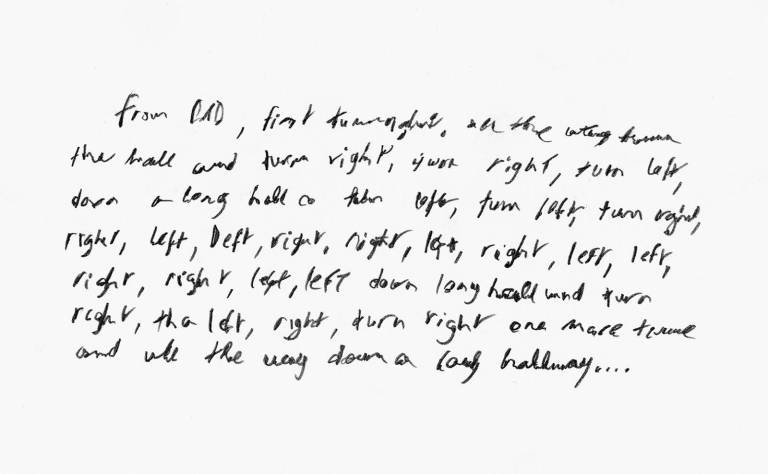 From DAD, first turn right, all the way down
the hall and turn right, turn right, turn left,
down a long hall turn left, turn left, turn right,
right, left, left, right, right, left, right, left, left,
right, right, left, left down long hall and turn
right, the left, right, turn right one more time
and all the way down a long hallway....